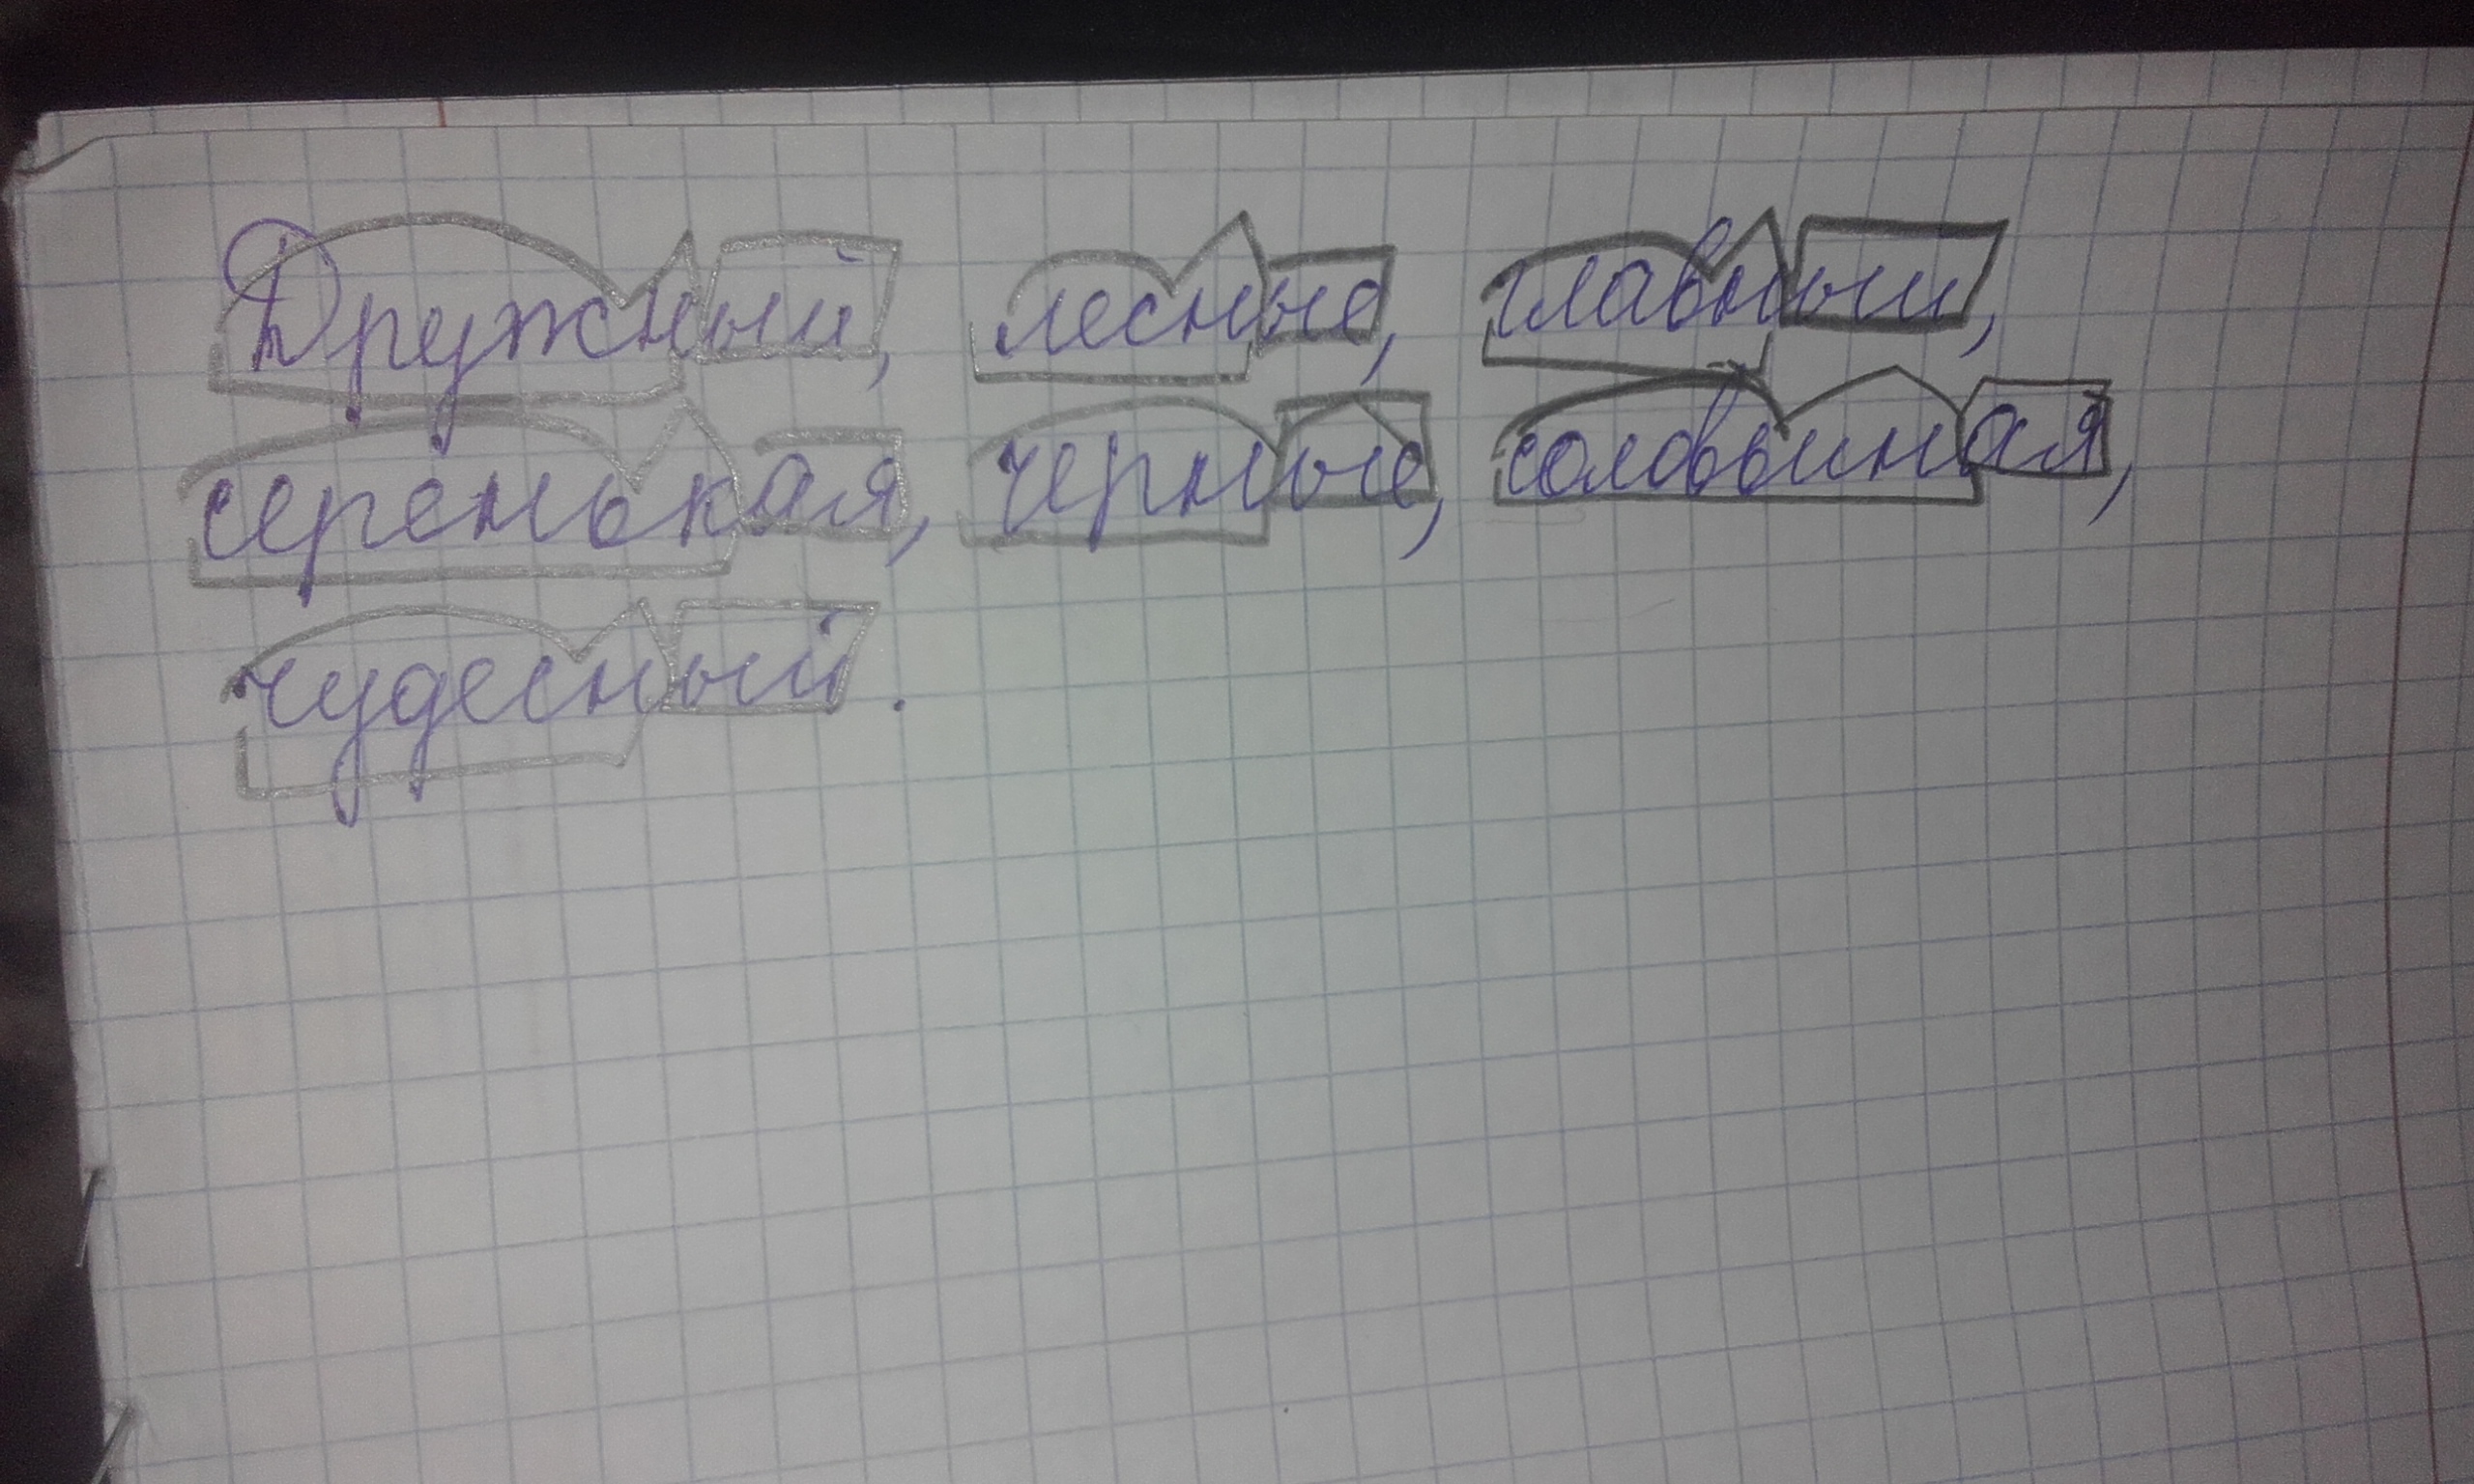 Дружный, лесные, главный,
серенькая, черные, соловьиная,
чудесный.